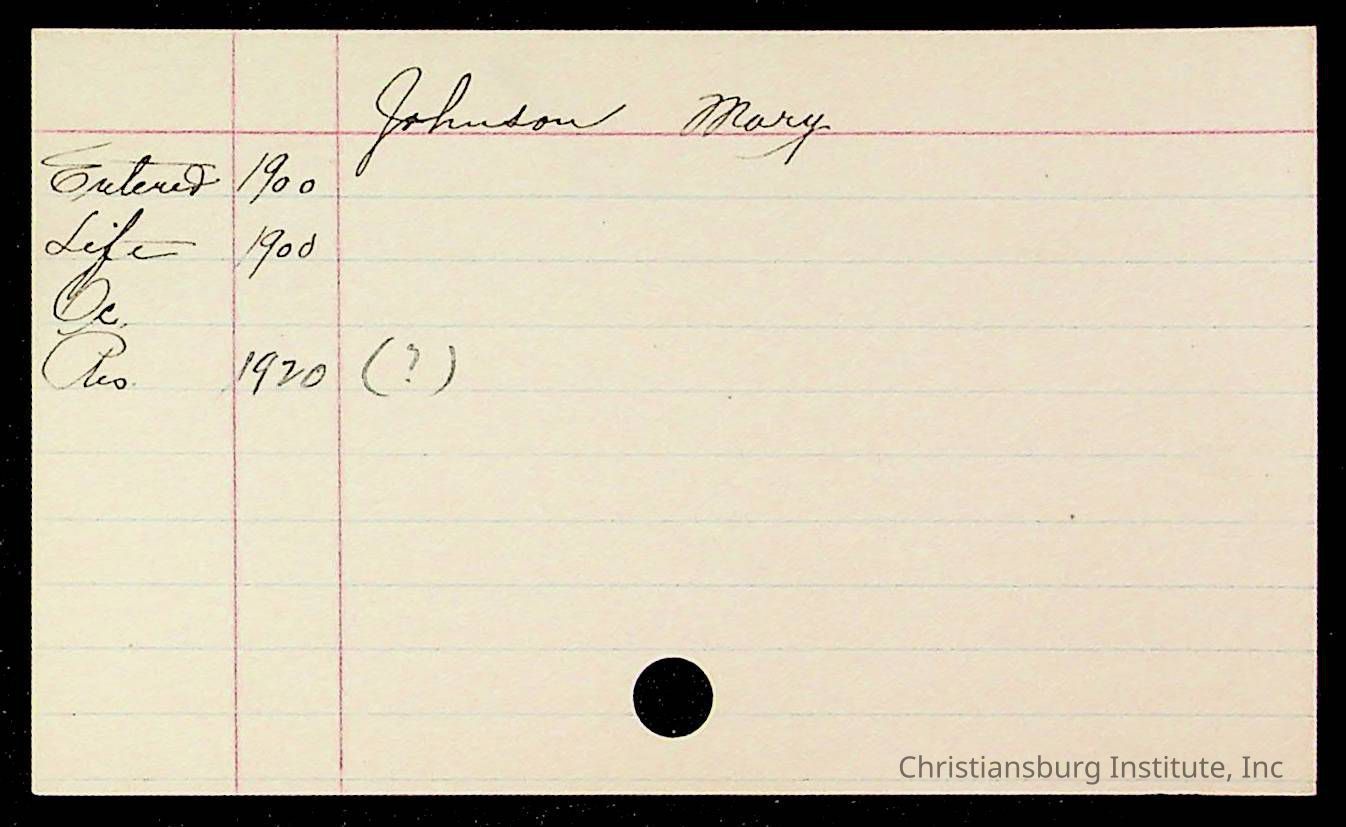 Johnson Mary
Entered 1900
Life 1900
Oc.
Res. 1920 (?)
Christiansburg Institute, Inc